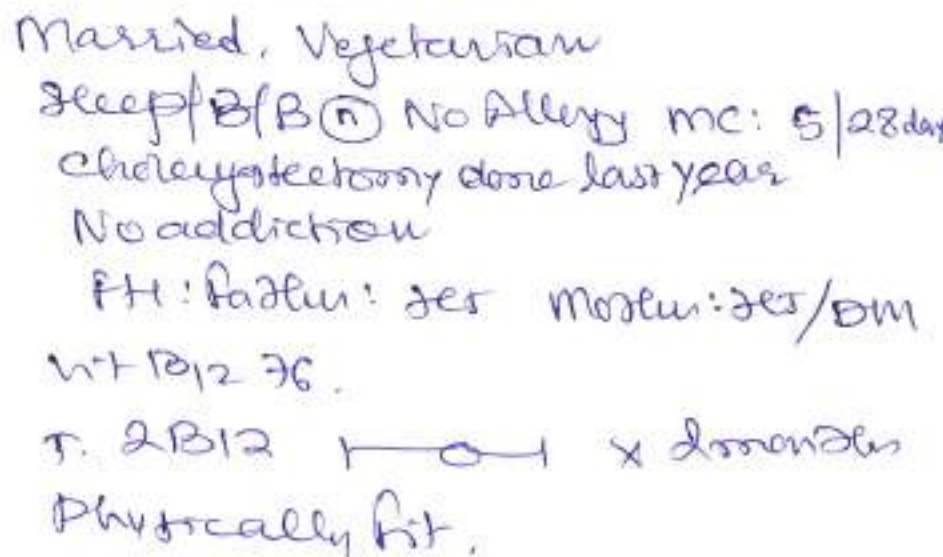 Married. Vegetarian
Sleep/B/B (n) No Allergy MC: 5/28 days
Cholecystectomy done last year
No addiction
FH: Father: Mother: /DM
Vit B12 76.
T. 2B12 x months
Physically fit.